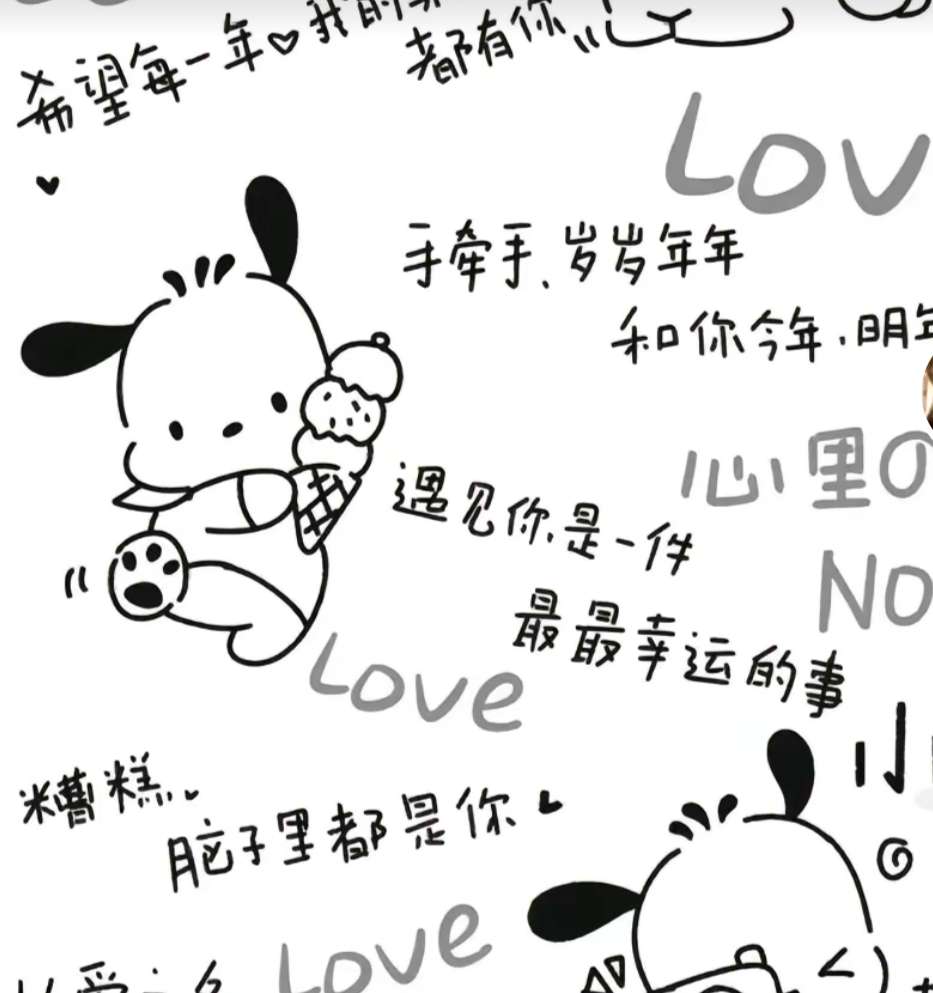 希望每一年♡我的
都有你
LOV
手牵手、岁岁年年
和你今年、明年
遇见你、是一件
心里
NO
最最幸运的事
Love
小
糟糕、
脑子里都是你
Love